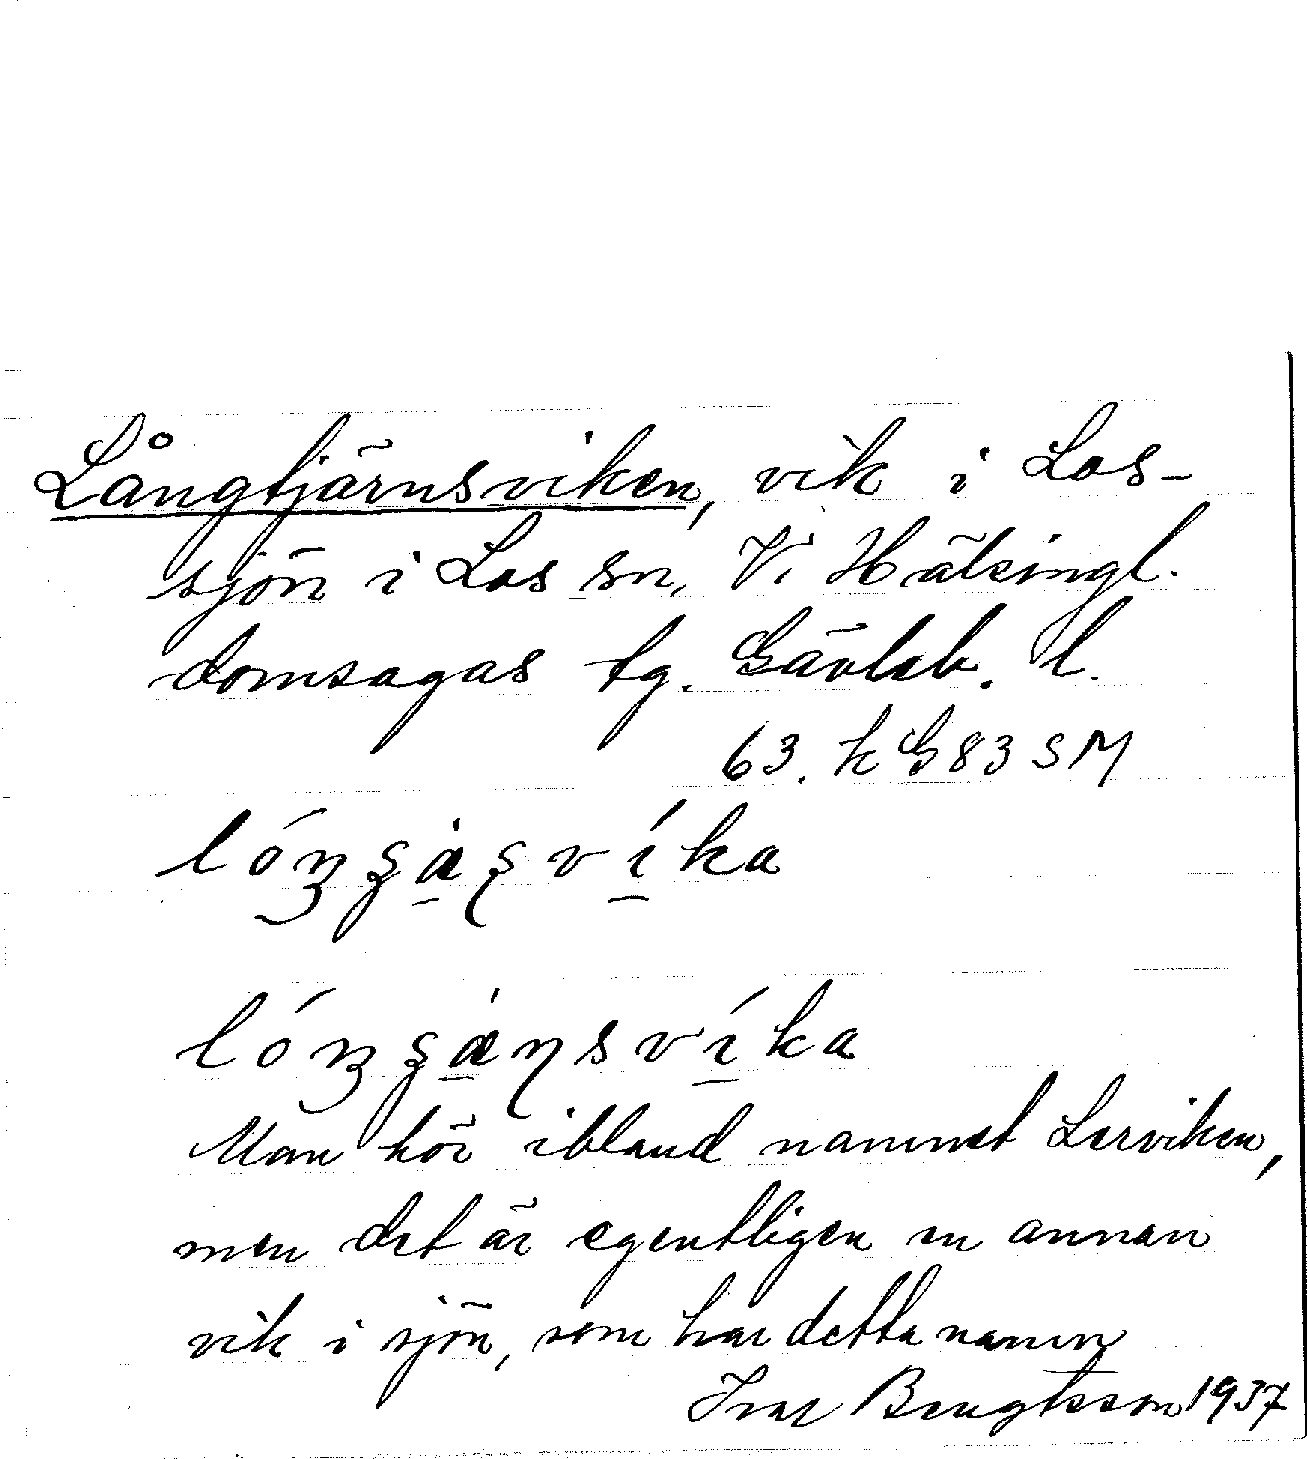 Långtjärnsviken, vik i Los-
sjön i Los sn, V. Hälsingl.
domsagas tg. Gävleb. l.
63. k G 83 S M
Man hör ibland namnet Lerviken,
men det är egentligen en annan
vik i sjön, som har detta namn
Ivar Bengtsson 1937